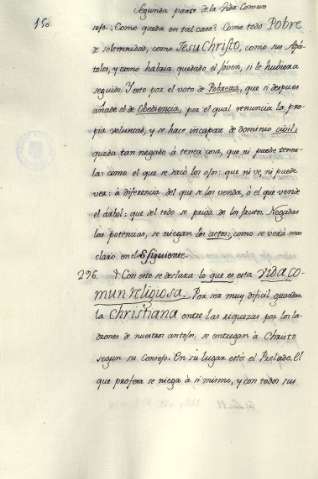 Segunda parte de la Vida Comun
150
sejo. ¿Como queda en tal caso? Como todo Pobre
de solemnidad, como Jesu Christo, como sus Apó-
stoles, y como habria quedado el Joven, si le hubiera
seguido. Y esto por el voto de Pobreza, que si despues
añade el de Obediencia, por el qual renuncia la pro-
pia voluntad, y se hace incapaz de dominio civil:
queda tan negado á tener cosa, que ni puede tener-
la: como el que se sacó los ojos: que ni ve, ni puede
ver: à diferencia del que se los venda, ò el que vende
el árbol: que del todo se priva de los frutos. Negadas
las potencias, se niegan los actos, como se verá mas
claro en el § siguiente.
296. Con esto se declara lo que es esta vida co-
mun religiosa. Para ma muy dificil guardar
la Christiana entre las riquezas por los la-
drones de nuestros antojos, se entregan à Christo
segun su Consejo. En su lugar está el Prelado. El
que profesa se niega à si mismo, y con todos sus